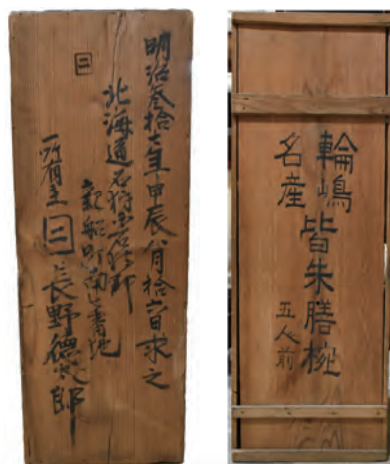 明治叄拾七年甲辰八月拾六日求之
北海道石狩国石狩郡
親船町南番地
所有主 長野徳太郎
輪嶋
名産
皆朱膳椀
五人前